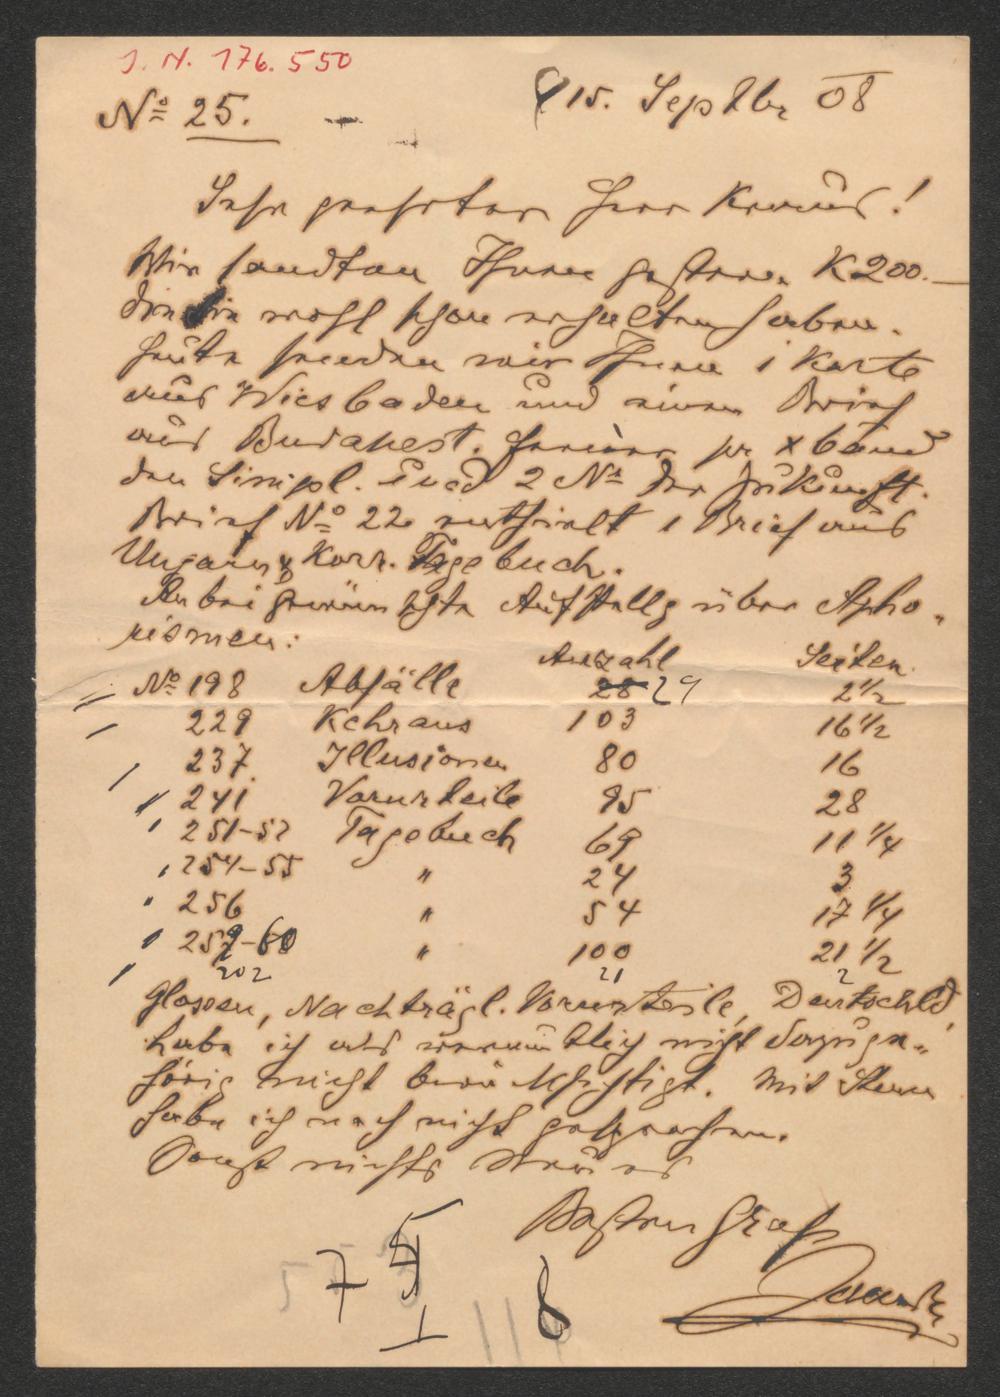 J. N. 176.550
No 25.
15. Septbr 08
Sehr geehrter Herr Kraus!
Wir sandten Ihnen gestern K 200.—
die Sie wohl schon erhalten haben.
Heute senden wir Ihnen 1 Karte
aus Wiesbaden und einen Brief
aus Budapest. Ferner pr xband
den Simpl. und 2 No der Zukunft.
Brief No 22 enthielt 1 Brief aus
Ungarn & Korr. Tagebuch.
Anbei gewünschte Aufstellg über Apho-
rismen:
Anzahl Seiten
No 198 Abfälle 28 29 2 1/2
229 Kehraus 103 16 1/2
237 Illusionen 80 16
241 Vorurteile 95 28
251-52 Tagebuch 69 11 1/4
254-55 " 24 3
256 " 54 17 1/4
259-60 " 100 21 1/2
202 21 2
Glossen, Nachträgl. Vorurteile, Deutschld,
habe ich als vermutlich nicht dazuge-
hörig nicht berücksichtigt. Mit Stern
habe ich noch nicht gesprochen.
Sonst nichts Neues
Besten Gruß
7
I
8